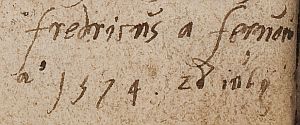 fredricus a fernon
a° 1574. 28 iulij